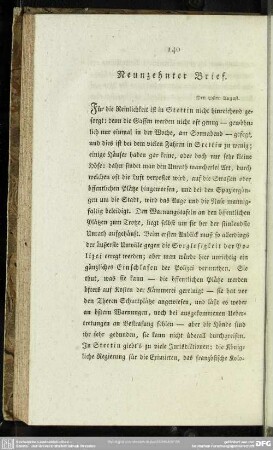 140
Neunzehnter Brief.
Den 29sten August.
Für die Reinlichkeit ist in Stettin nicht hinreichend ge-
sorgt: denn die Gassen werden nicht oft genug — gewöhn-
lich nur einmal in der Woche, am Sonnabend — gefegt,
und dies ist bei dem vielen Fahren in Stettin zu wenig;
einige Häuser haben gar keine, oder doch nur sehr kleine
Höfe: daher findet man den Unrath mancherlei Art, durch
welchen oft die Luft verpestet wird, auf die Straßen oder
öffentlichen Plätze hingeworfen, und bei den Spaziergän-
gen um die Stadt, wird das Auge und die Nase mannig-
faltig beleidigt. Den Warnungstafeln an den öffentlichen
Plätzen zum Trotze, liegt selbst um sie her der stinkendste
Unrath aufgehäuft. Beim ersten Anblick muß so allerdings
der äußerste Unwille gegen die Sorglosigkeit der Po-
lizei erregt werden; aber man würde hier unrichtig ein
gänzliches Einschlafen der Polizei vermuthen. Sie
thut, was sie kann — die öffentlichen Plätze werden
öfters auf Kosten der Kämmerei gereinigt — sie hat vor
den Thoren Schuttplätze angewiesen, und läßt es weder an
öftern Warnungen, noch bei ausgekommenen Ueber-
tretungen an Bestrafung fehlen — aber die Hände sind
ihr sehr gebunden, sie kann nicht überall durchgreifen.
In Stettin giebt's zu viele Jurisdiktionen; die Königs-
liche Regierung für die Eximirten, das französische Kolo-